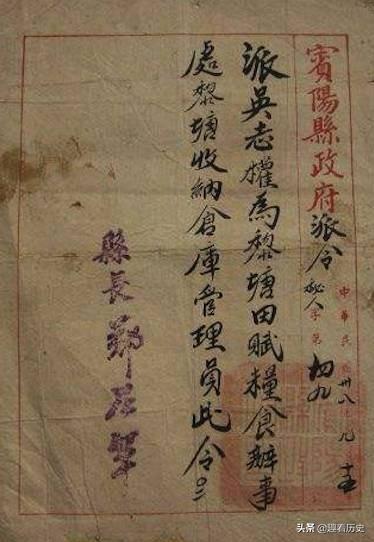 賓陽縣政府派令 秘人字第四九
中華民國卅八 九 十五
派吳志權為黎塘田賦糧食辦事
處黎塘收納倉庫管理員此令
縣長
头条 @趣看历史